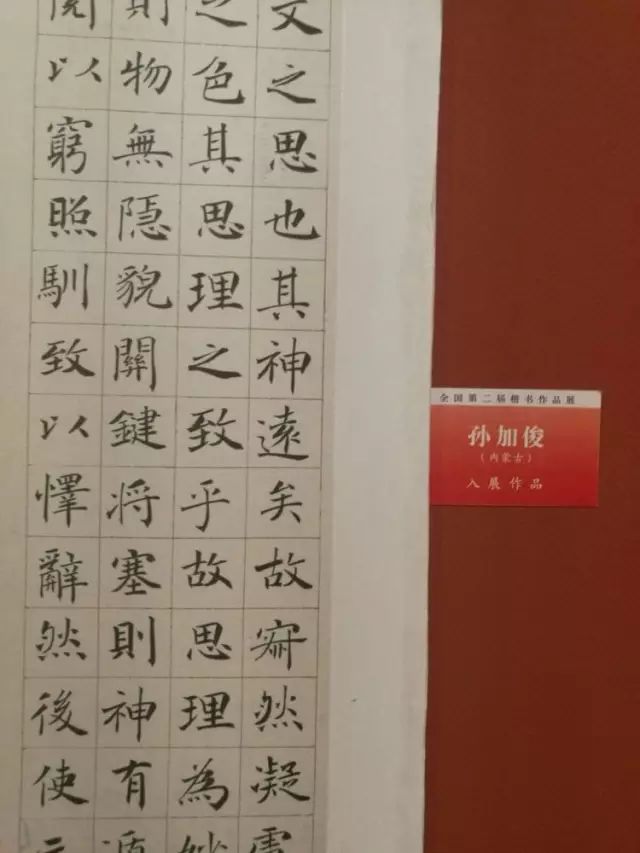 文之思也其神遠矣故寂然凝
之色其思理之致乎故思理為妙
則物無隱貌關鍵将塞則神有遁
閱以窮照馴致以懌辭然後使
全国第二届楷书作品展
孙加俊
（内蒙古）
入展作品